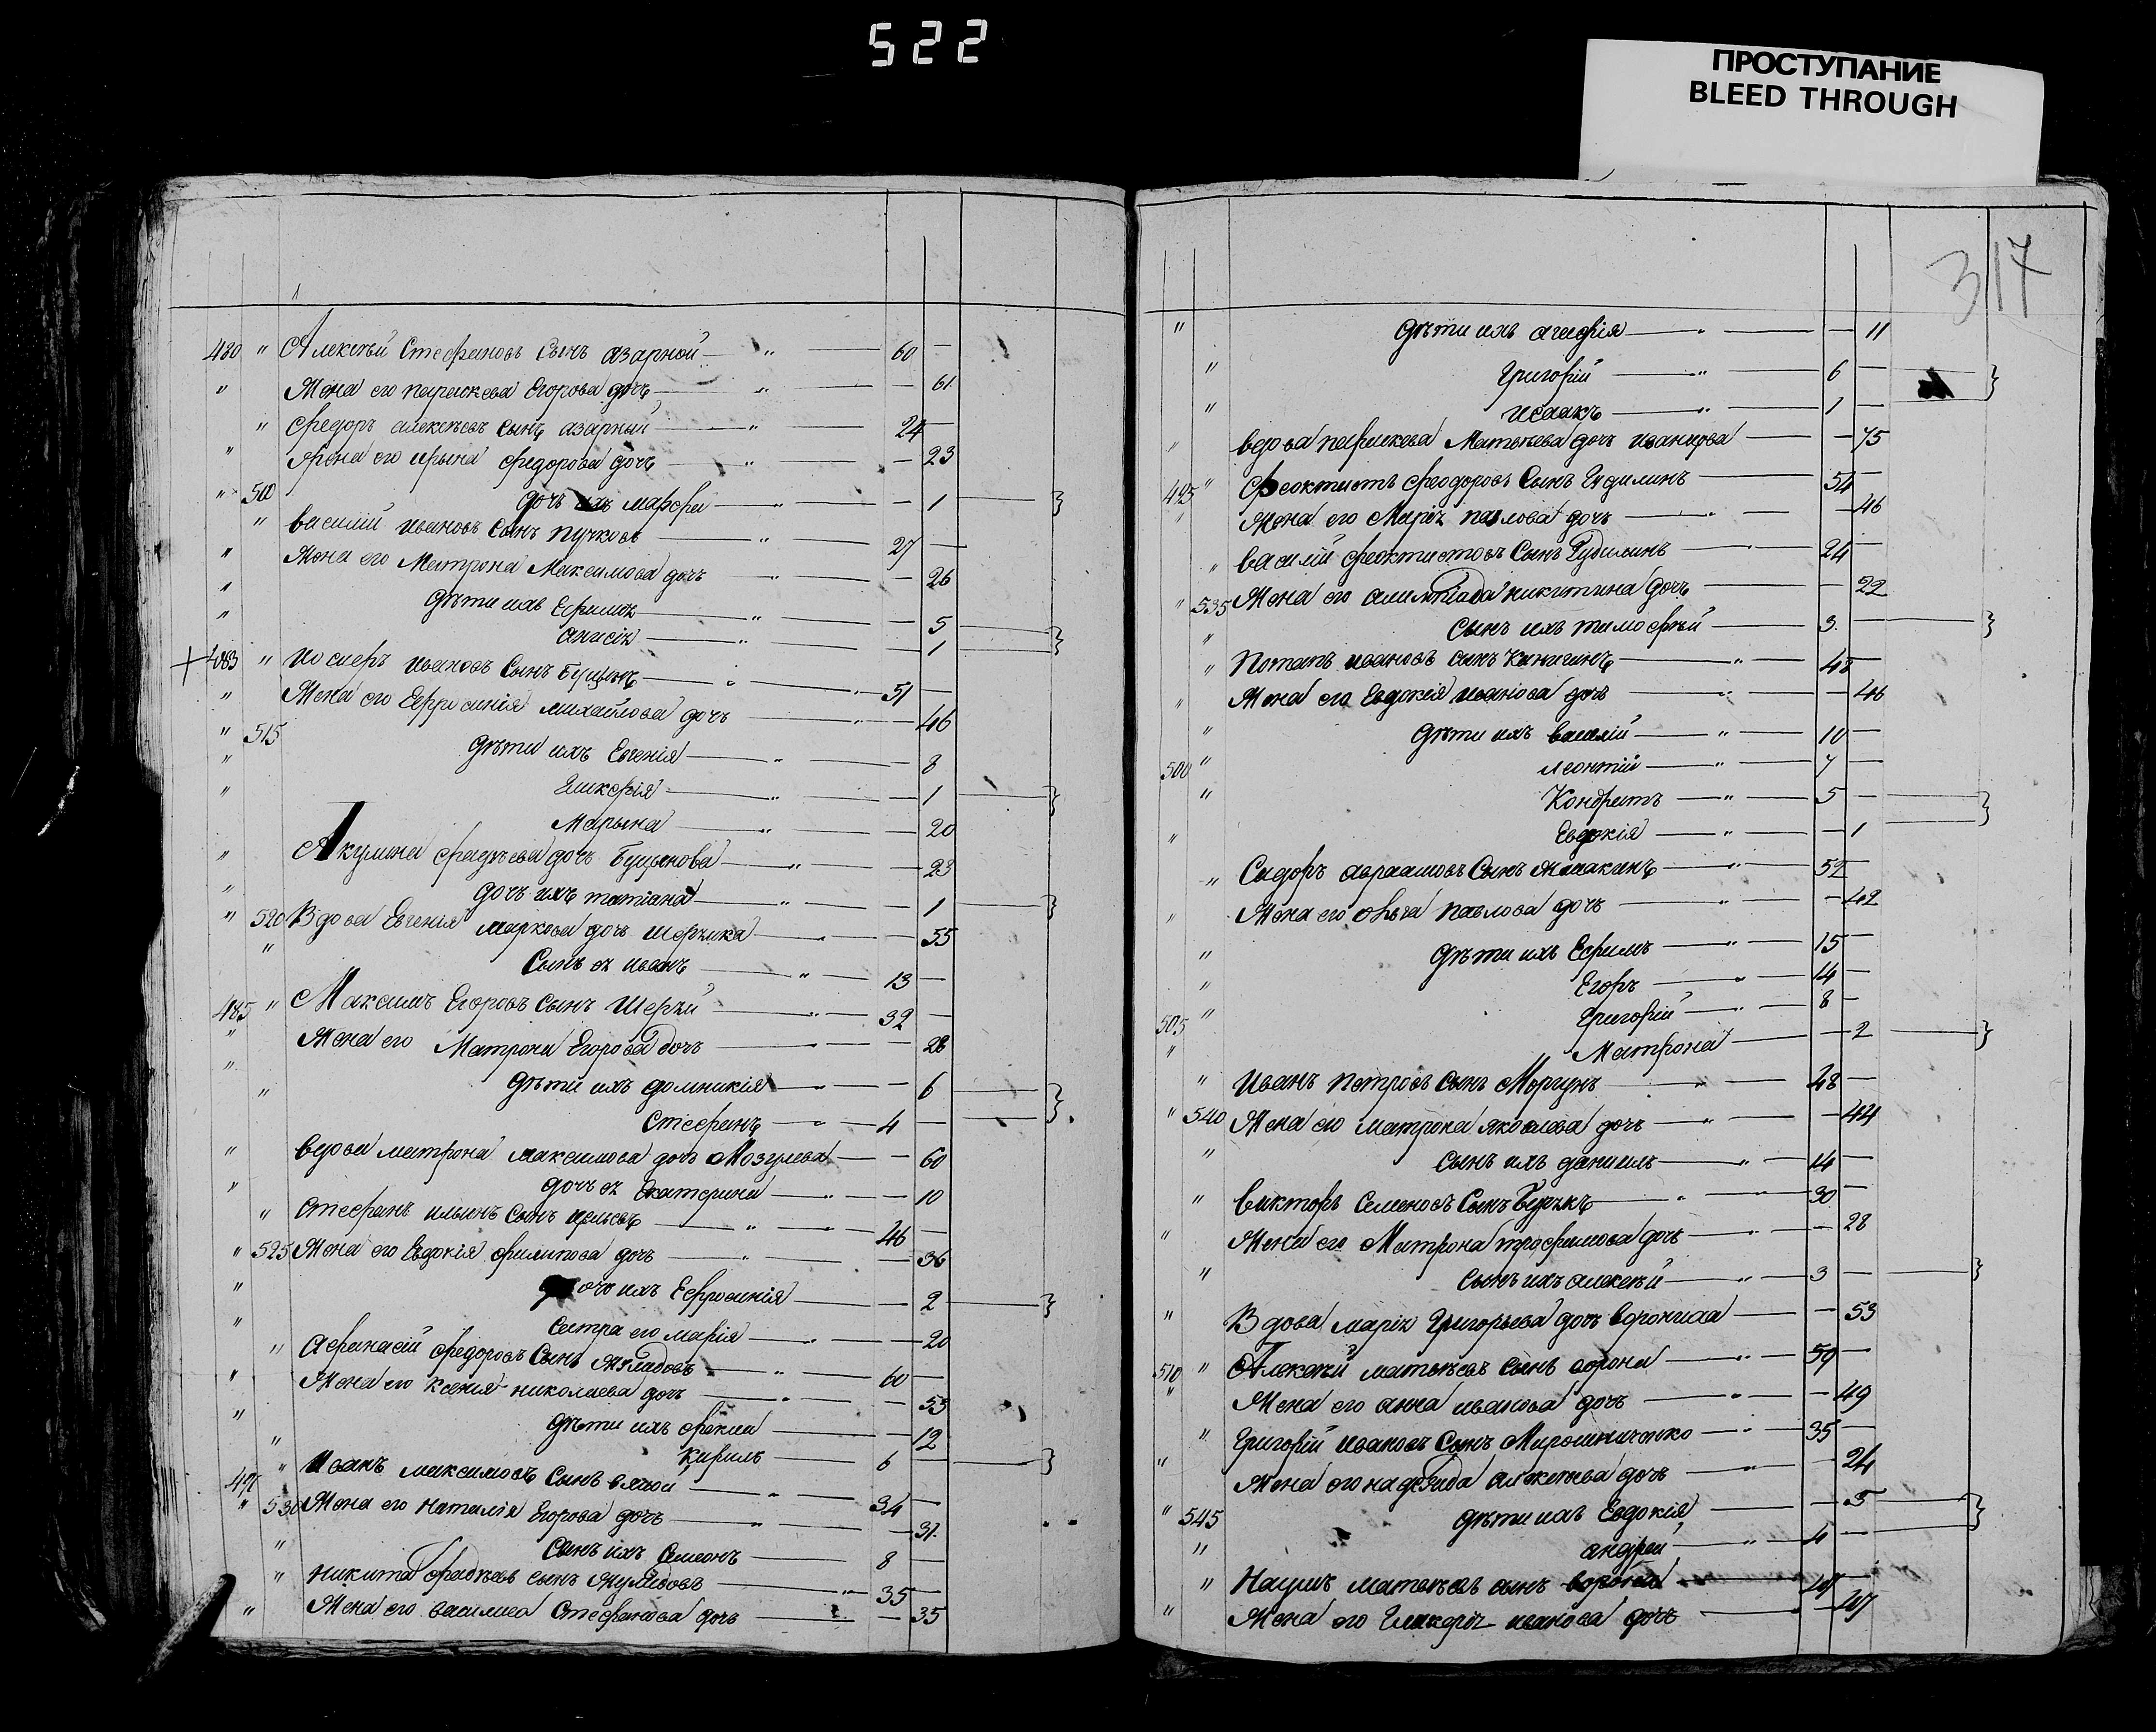 522
ПРОСТУПАНИЕ
BLEED THROUGH
317
480 " Алексѣй Стефановъ Сынъ азарной — " — 60 —
" Жена его параскева Егорова дочь — " — — 61
" Федоръ алексѣевъ Сынъ азарный — " — 24 —
" Жена его ирына федорова дочь — " — — 23
" 510 дочь ихъ марфа — " — — 1
" василій ивановъ Сынъ пучковъ — " — 27 —
" Жена его Матрона Максимова дочь — " — — 26
" дѣти ихъ Ефимія — " — — 5
" анисія — " — — 1
483 " иосифъ ивановъ Сынъ — " — 51 —
" Жена его Ефросинія михайлова дочь — " — — 46
" 515 дѣти ихъ Евгенія — " — — 8
" Гликерія — " — — 1
" Марьина — " — — 20
" Акулина фадѣева дочь — " — — 23
" дочь ихъ татіана — " — — 1
" 520 Вдова Евгенія маркова дочь — " — — 55
" Сынъ ея иванъ — " — 13 —
485 " Максимъ Егоровъ Сынъ — " — 32 —
" Жена его Матрона Егорова дочь — " — — 28
" дѣти ихъ домникія — " — — 6
" Стефанъ — " — 4 —
" вдова матрона максимова дочь — — 60
" дочь ея Екатерина — " — — 10
" Стефанъ ильинъ Сынъ — " — 46 —
" 525 Жена его Евдокія филипова дочь — " — — 36
" дочь ихъ Ефросинія — — 2
" сестра его марія — " — — 20
" Афанасій федоровъ Сынъ — " — 60 —
" Жена его Ксенія николаева дочь — " — — 53
" дѣти ихъ фекла — — 12
" Кирилъ — 6 —
" Иванъ максимовъ Сынъ — " — 34 —
" 530 Жена его наталія Егорова дочь — " — — 31
" Сынъ ихъ Семіонъ — 8 —
" никита фадѣевъ сынъ — " — 35 —
" Жена его василиса Стефанова дочь — — 35
" дѣти ихъ агафія — " — — 11
" Григорій — " — 6 —
" исаакъ — " — 1 —
" вдова параскева Матвѣева дочь иванцова — — 75
495 " Феоктистъ феодоровъ Сынъ — 54 —
" Жена его Марія павлова дочь — " — — 46
" василій феоктистовъ Сынъ Гудилинъ — " — 24 —
" 535 Жена его олимпіада никитина дочь — — 22
" сынъ ихъ тимофѣй — 3 —
" Потапъ ивановъ сынъ — " — 48 —
" Жена его Евдокія иванова дочь — " — — 46
" дѣти ихъ василій — " — 10 —
500 " леонтій — " — 7 —
" Кондратъ — " — 5 —
" Евдокія — " — — 1
" Сидоръ авраамовъ Сынъ — " — 52 —
" Жена его ольга павлова дочь — " — — 42
" дѣти ихъ Ефимъ — " — 15 —
" Егоръ — " — 14 —
505 " Григорій — " — 8 —
" Матрона — — 2
" Иванъ петровъ сынъ Моргунъ — " — 48 —
" 540 Жена его матрона яковлева дочь — " — — 44
" сынъ ихъ даніилъ — " — 14 —
" викторъ Семеновъ Сынъ — " — 30 —
" Жена его Матрона трофимова дочь — " — — 28
" сынъ ихъ алексѣй — " — 3 —
" Вдова марія Григорьева дочь — — 53
510 " Алексѣй матвѣевъ сынъ ворона — " — 50 —
" Жена его анна иванова дочь — " — — 49
" Григорій ивановъ Сынъ Мирошниченко — " — 35 —
" Жена его надежда алексѣева дочь — " — — 24
" 545 дѣти ихъ Евдокія — — 5
" андрей — " — 4 —
" Наумъ матвѣевъ сынъ ворона —
" Жена его Гликерія иванова дочь — — 47